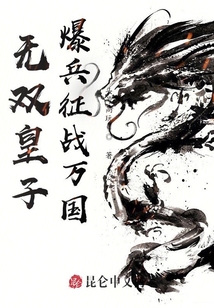 无双皇子
爆兵征战万国
著
昆仑中文